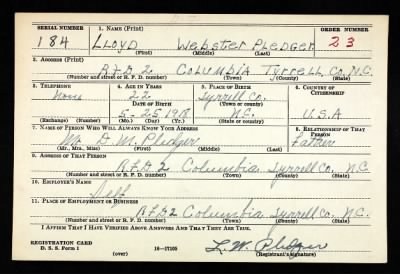 SERIAL NUMBER 1. NAME (Print) ORDER NUMBER
184 LLOYD Webster Pledger 23
(First) (Middle) (Last)
2. ADDRESS (Print)
R.F.D 2 Columbia Tyrrell Co. N.C.
(Number and street or R. F. D. number) (Town) (County) (State)
3. TELEPHONE 4. AGE IN YEARS 5. PLACE OF BIRTH 6. COUNTRY OF CITIZENSHIP
None 22 Tyrrell Co.
DATE OF BIRTH (Town or county)
5-25-1918 N.C. U.S.A
(Exchange) (Number) (Mo.) (Day) (Yr.) (State or country)
7. NAME OF PERSON WHO WILL ALWAYS KNOW YOUR ADDRESS 8. RELATIONSHIP OF THAT PERSON
Mr. D. M. Pledger Father
(Mr., Mrs., Miss) (First) (Middle) (Last)
9. ADDRESS OF THAT PERSON
R.F.D 2 Columbia Tyrrell Co. N.C.
(Number and street or R. F. D. number) (Town) (County) (State)
10. EMPLOYER'S NAME
Self
11. PLACE OF EMPLOYMENT OR BUSINESS
R.F.D 2 Columbia Tyrrell Co. N.C.
(Number and street or R. F. D. number) (Town) (County) (State)
I AFFIRM THAT I HAVE VERIFIED ABOVE ANSWERS AND THAT THEY ARE TRUE.
REGISTRATION CARD L. W. Pledger
D. S. S. Form 1 16-17105 (Registrant's signature)
(over)